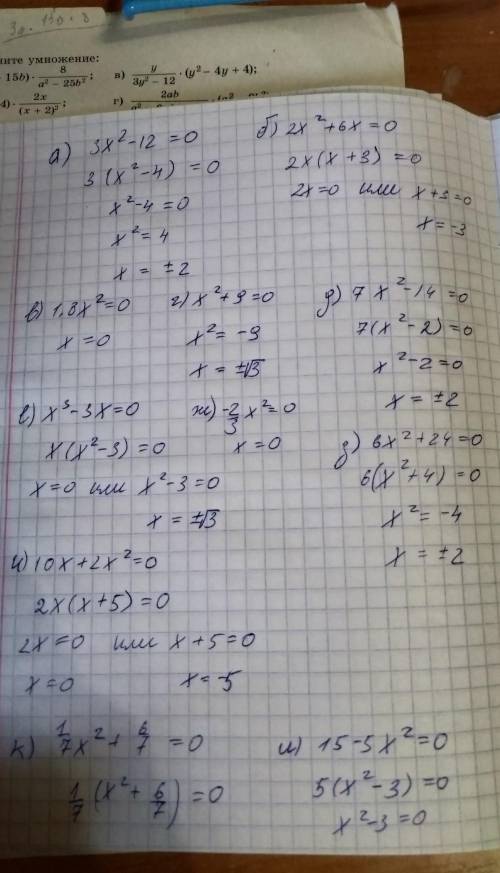 ните умножение:
15b) · 8/(a² − 25b²);   в) y/(3y² − 12) · (y² − 4y + 4);
4) · 2x/(x + 2)²;   г) 2ab
а) 3x² − 12 = 0
3(x² − 4) = 0
x² − 4 = 0
x² = 4
x = ±2
б) 2x² + 6x = 0
2x(x + 3) = 0
2x = 0 или x + 3 = 0
x = −3
в) 1,8x² = 0
x = 0
г) x² + 9 = 0
x² = −9
x = ±√3
д) 7x² − 14 = 0
7(x² − 2) = 0
x² − 2 = 0
x = ±2
е) x³ − 3x = 0
x(x² − 3) = 0
x = 0 или x² − 3 = 0
x = ±√3
ж) −2/3 x² = 0
x = 0
з) 6x² + 24 = 0
6(x² + 4) = 0
x² = −4
x = ±2
и) 10x + 2x² = 0
2x(x + 5) = 0
2x = 0 или x + 5 = 0
x = 0   x = −5
к) 1/7 x² + 6/7 = 0
1/7 (x² + 6/7) = 0
л) 15 − 5x² = 0
5(x² − 3) = 0
x² − 3 = 0